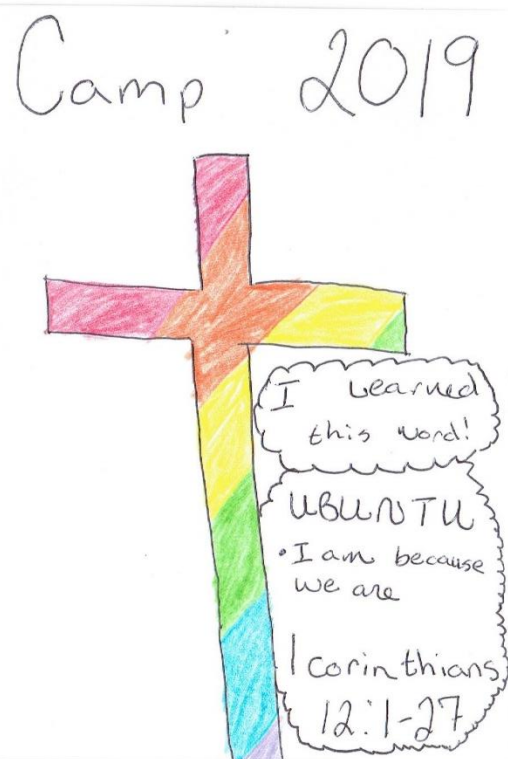 Camp 2019
I Learned
this word!
UBUNTU
• I am because
we are
1 corinthians
12:1-27